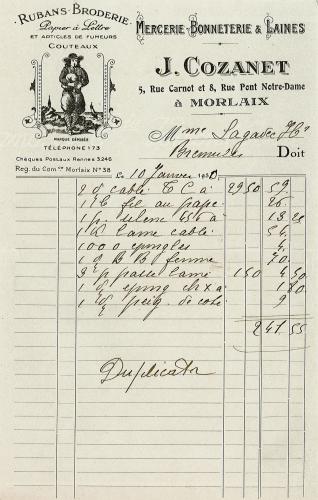 RUBANS·BRODERIE
Papier à Lettre
ET ARTICLES DE FUMEURS
COUTEAUX
MARQUE DÉPOSÉE
TÉLÉPHONE 173
Chèques Postaux Rennes 3246
Reg. du Com.ce Morlaix N° 38
MERCERIE·BONNETERIE & LAINES
J. COZANET
5, Rue Carnot et 8, Rue Pont Notre-Dame
à MORLAIX
Mme Lagadec
Doit
Le 10 Janvier 1930
2 d cablé T C à 29 50 59
1 fil au pape 26
1 p. 13
1 d lame cablé 54
1000 épingles 4
1 d B B femme 70
3 p passe lamé 1 50 4 50
1 d à 1
1 d peig. de coté 9
241 55
Duplicata